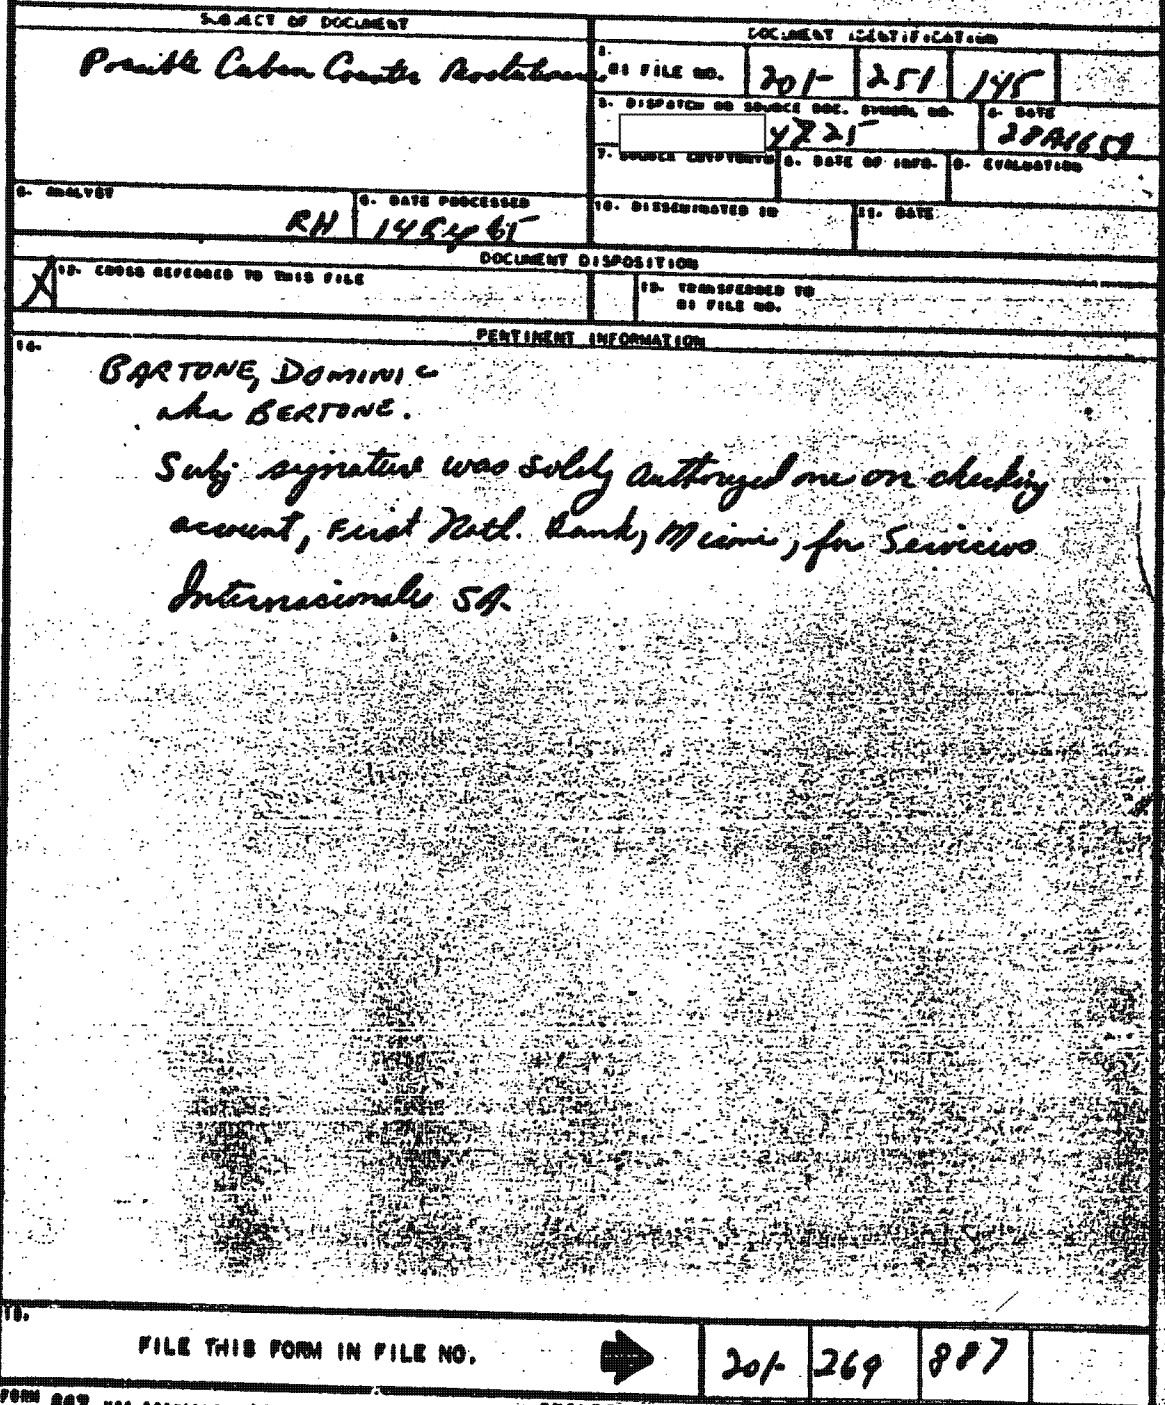 SUBJECT OF DOCUMENT
DOCUMENT IDENTIFICATION
Possible Cuban Counter
2. RI FILE NO. 201- 251 145
3. DISPATCH OR SOURCE DOC. SYMBOL NO.
4. DATE
4725
7. SOURCE CRYPTONYM
8. DATE OF INFO.
9. EVALUATION
5. ANALYST
RH
6. DATE PROCESSED
10. DISSEMINATED IN
11. DATE
DOCUMENT DISPOSITION
X 12. CROSS REFERRED TO THIS FILE
13. TRANSFERRED TO
RI FILE NO.
PERTINENT INFORMATION
14.
BARTONE, DOMINIC
aka BERTONE.
Subj signature was solely authorized one on checking
account, First Natl. Bank, Miami, for Servicios
Internacionales SA.
15.
FILE THIS FORM IN FILE NO.
201- 269 887
FORM